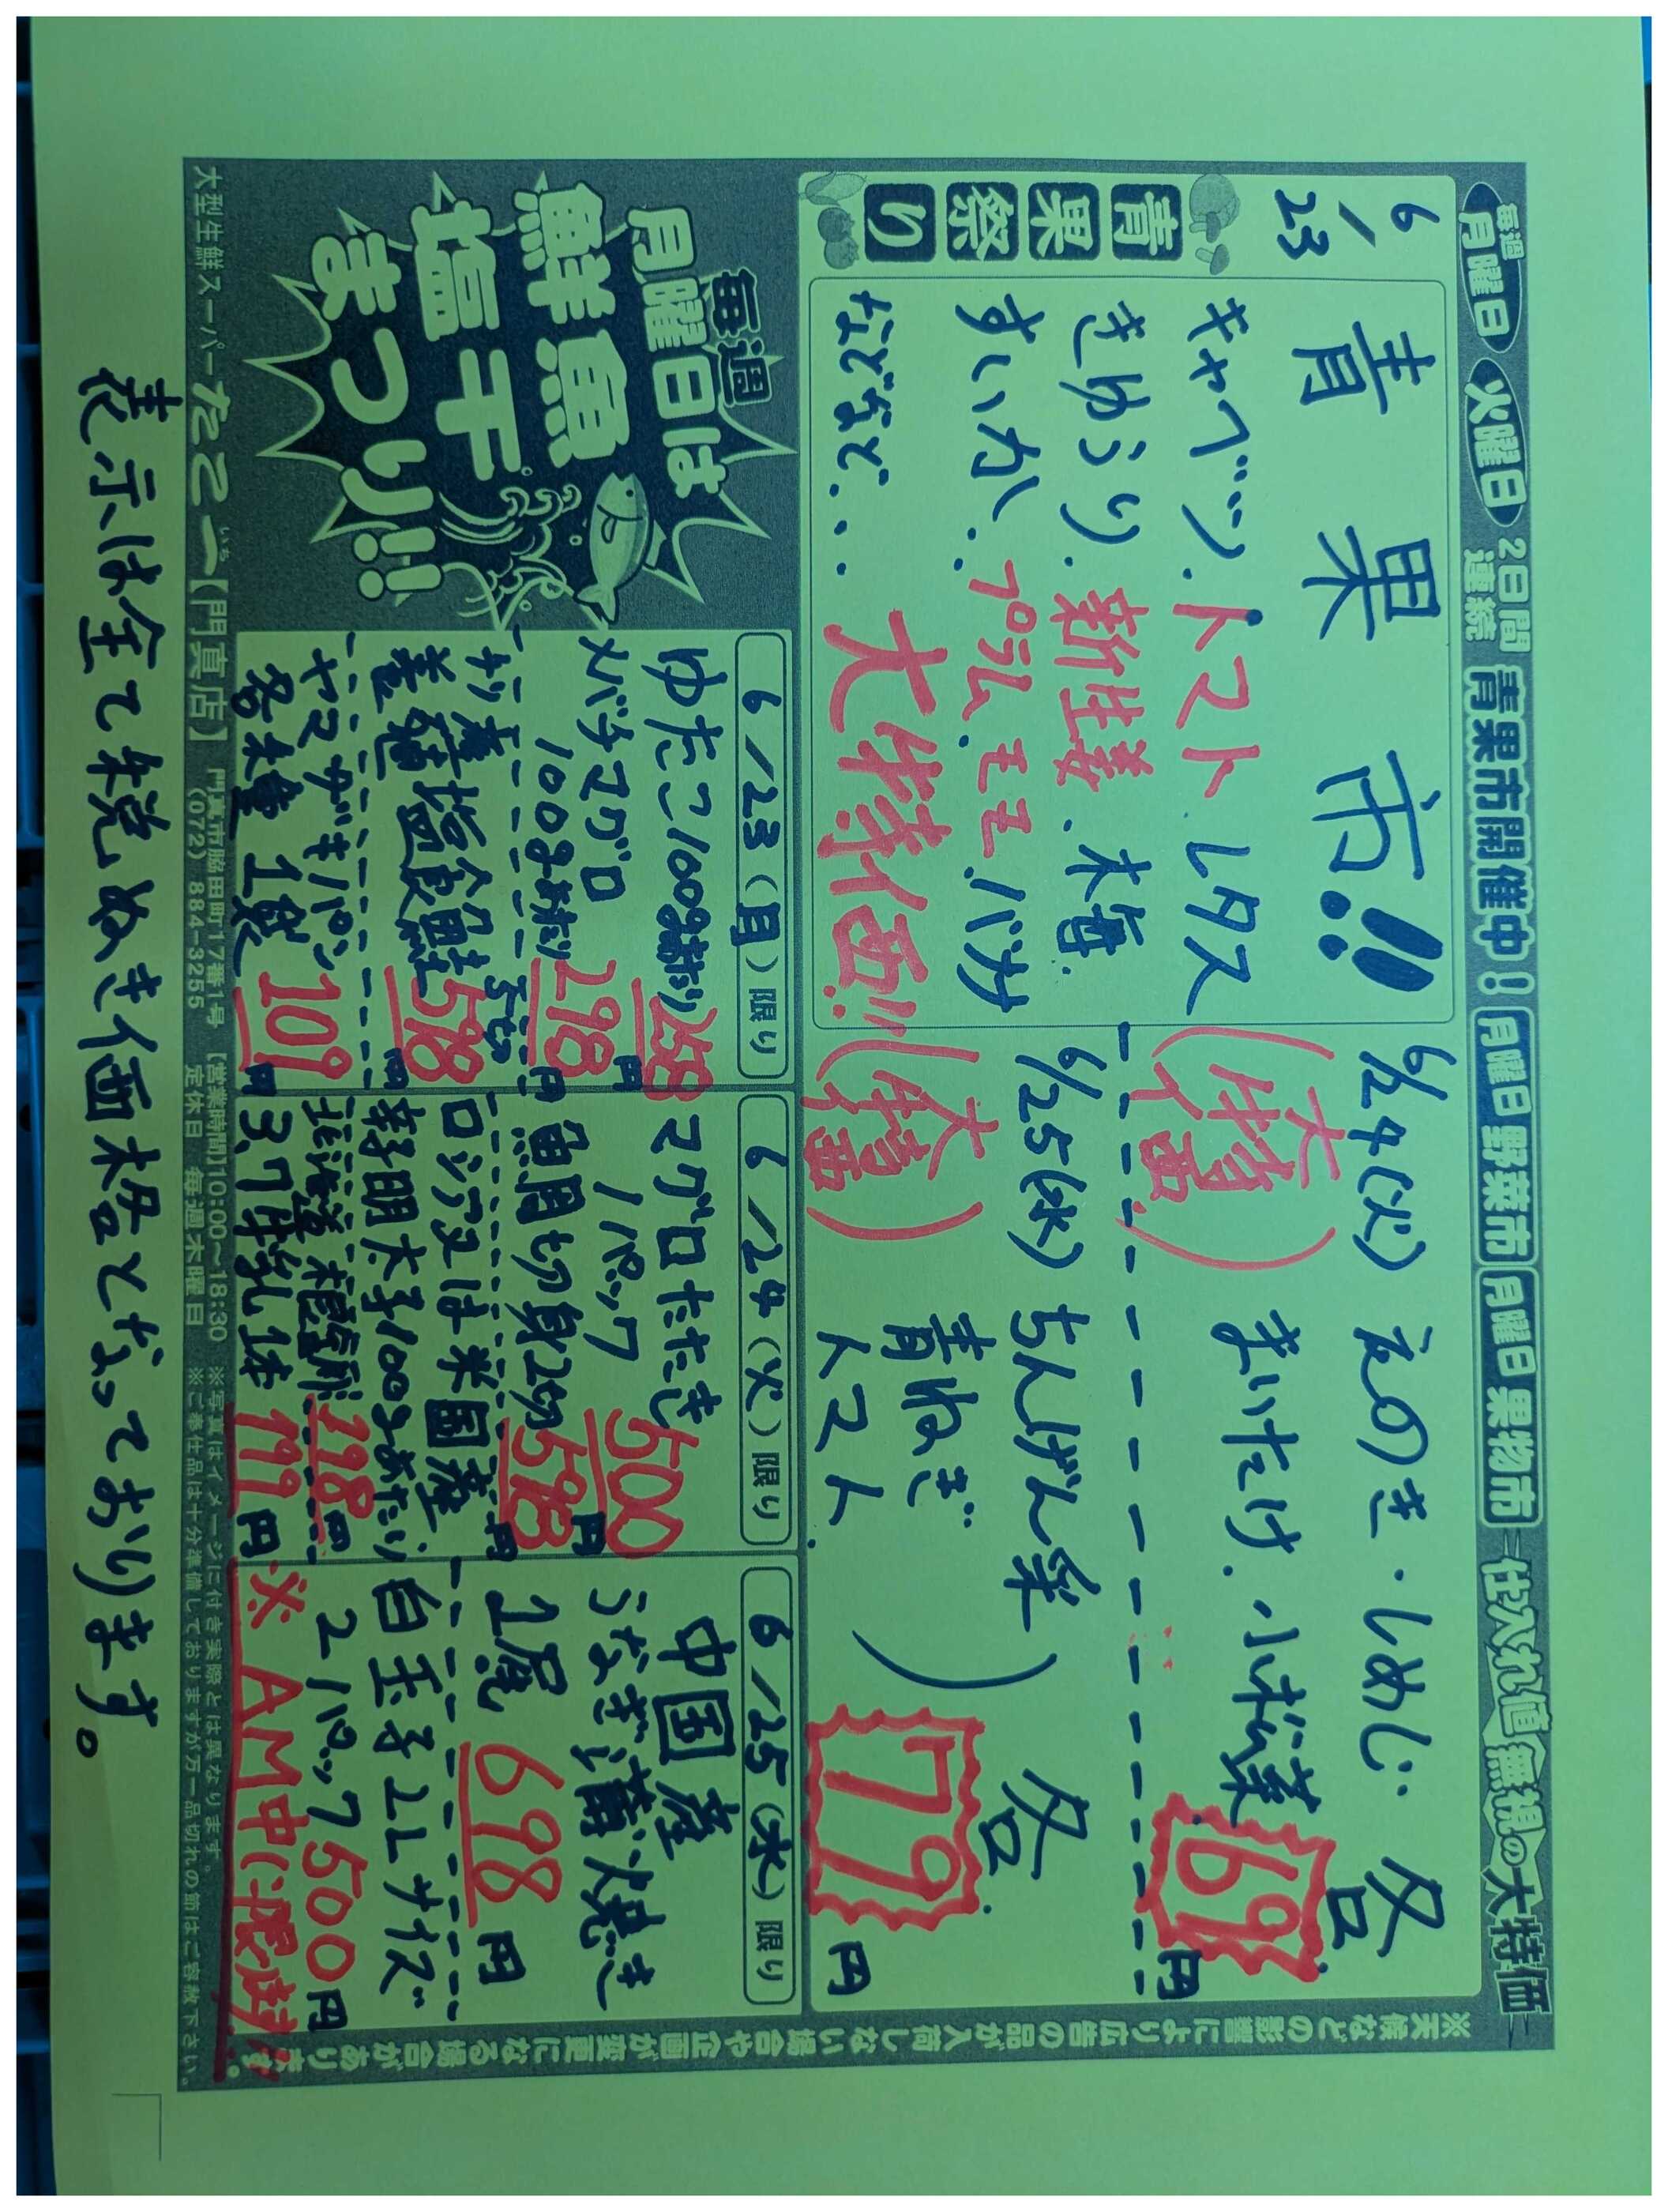 毎週 月曜日 火曜日 2日間連続 青果市開催中！ 月曜日 野菜市 月曜日 果物市 仕入れ値無視の大特価
6/23
青果祭り
青果市!!
キャベツ.トマト.レタス
きゅうり.新生姜.木耳.
すいか.プラム.モモ.バナナ
などなど...大特価!!
6/24(火)
(大特価)
えのき・しめじ
まいたけ.小松菜
各
69円
6/25(水)
(大特価)
ちんげん菜
青ねぎ
トマト
各
79円
※天候などの影響により広告の品が入荷しない場合や企画が変更になる場合があります。
毎週
月曜日は
鮮魚
塩干
まつり!!
6/23(月)限り
ゆたこ100g当り
258円
メバチマグロ
100g当り
298円
チリ産
養殖塩銀鮭
5切
598円
ヤマザキパン
各種 1袋
101円
6/24(火)限り
マグロたたき
1パック
500円
魚屑切身2切
598円
ロシア又は米国産
辛子明太子100gあたり
398円
3.7牛乳 1本
199円
6/25(水)限り
中国産
うなぎ蒲焼き
1尾 698円
白玉子2Lサイズ
2パック500円
※AM中に限ります。
大型生鮮スーパー たこ一 いち【門真店】 門真市脇田町17番1号 (072) 884-3255 【営業時間】10:00～18:30 定休日 毎週木曜日
※写真はイメージに付き実際とは異なります。
※ご奉仕品は十分準備しておりますが万一品切れの節はご容赦下さい。
表示は全て税ぬき価格となっております。